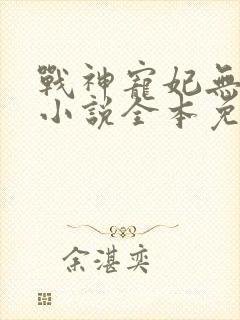 戰神寵妃無
小說全本免
余湛奕